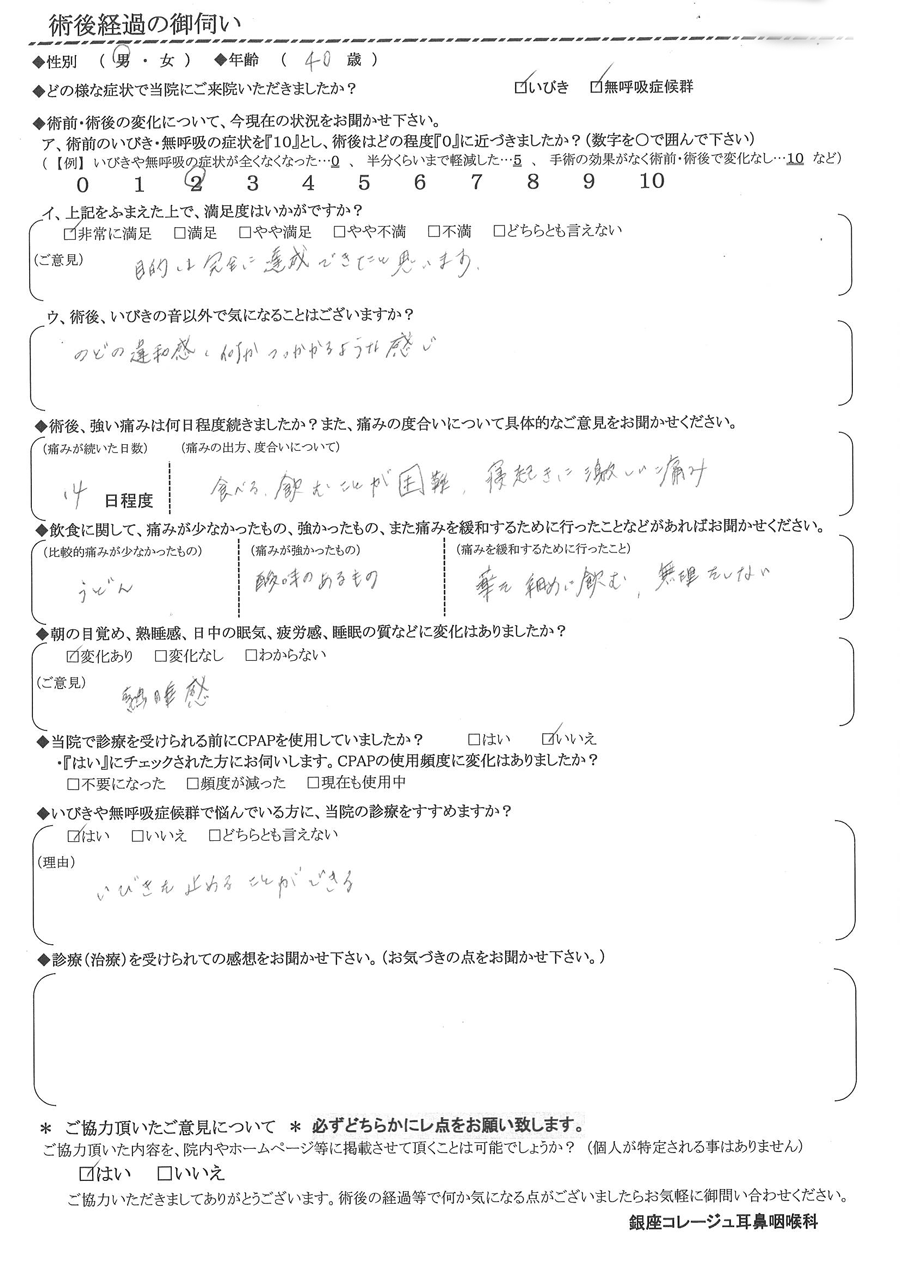 術後経過の御伺い
◆性別 （ 男 ・ 女 ） ◆年齢 （ 40 歳 ）
◆どの様な症状で当院にご来院いただきましたか？ ☑いびき ☑無呼吸症候群
◆術前・術後の変化について、今現在の状況をお聞かせ下さい。
ア、術前のいびき・無呼吸の症状を『10』とし、術後はどの程度『0』に近づきましたか？（数字を〇で囲んで下さい）
（【例】いびきや無呼吸の症状が全くなくなった…0 、 半分くらいまで軽減した…5 、 手術の効果がなく術前・術後で変化なし…10 など）
0 1 2 3 4 5 6 7 8 9 10
イ、上記をふまえた上で、満足度はいかがですか？
☑非常に満足 □満足 □やや満足 □やや不満 □不満 □どちらとも言えない
（ご意見） 目的は完全に達成できたと思います。
ウ、術後、いびきの音以外で気になることはございますか？
のどの違和感、何かつっかかるような感じ
◆術後、強い痛みは何日程度続きましたか？また、痛みの度合いについて具体的なご意見をお聞かせください。
（痛みが続いた日数） （痛みの出方、度合いについて）
14 日程度 食べる、飲むことが困難、寝起きに激しい痛み
◆飲食に関して、痛みが少なかったもの、強かったもの、また痛みを緩和するために行ったことなどがあればお聞かせください。
（比較的痛みが少なかったもの） （痛みが強かったもの） （痛みを緩和するために行ったこと）
うどん 酸味のあるもの 薬を細めに飲む、無理をしない
◆朝の目覚め、熟睡感、日中の眠気、疲労感、睡眠の質などに変化はありましたか？
☑変化あり □変化なし □わからない
（ご意見） 熟睡感
◆当院で診療を受けられる前にCPAPを使用していましたか？ □はい ☑いいえ
・『はい』にチェックされた方にお伺いします。CPAPの使用頻度に変化はありましたか？
□不要になった □頻度が減った □現在も使用中
◆いびきや無呼吸症候群で悩んでいる方に、当院の診療をすすめますか？
☑はい □いいえ □どちらとも言えない
（理由）
いびきを止めることができる
◆診療（治療）を受けられての感想をお聞かせ下さい。（お気づきの点をお聞かせ下さい。）
＊ ご協力頂いたご意見について ＊ 必ずどちらかにレ点をお願い致します。
ご協力頂いた内容を、院内やホームページ等に掲載させて頂くことは可能でしょうか？ （個人が特定される事はありません）
☑はい □いいえ
ご協力いただきましてありがとうございます。術後の経過等で何か気になる点がございましたらお気軽に御問い合わせください。
銀座コレージュ耳鼻咽喉科